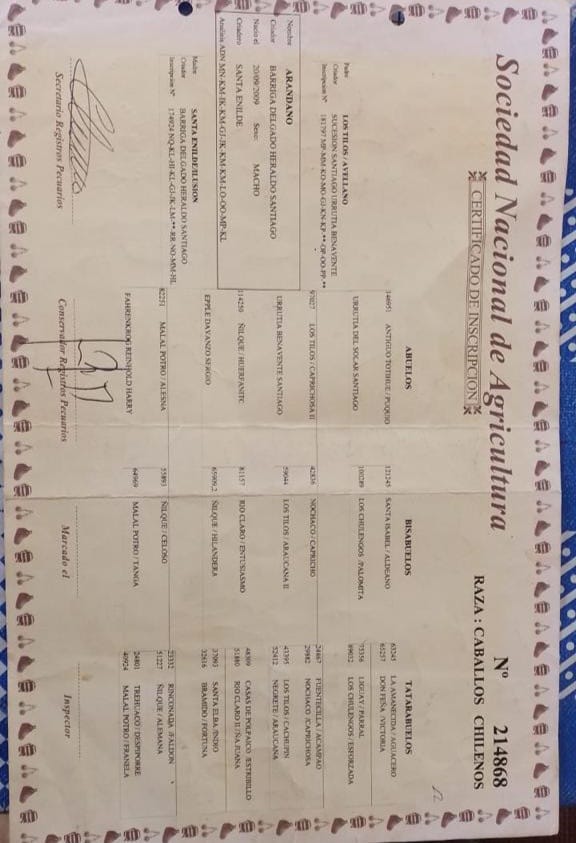 Sociedad Nacional de Agricultura
CERTIFICADO DE INSCRIPCION
Nº 214868
RAZA : CABALLOS CHILENOS
Nombre ARANDANO
Criador BARRIGA DELGADO HERALDO SANTIAGO
Nacio el 20/09/2009 Sexo: MACHO
Criadero SANTA ENILDE
Análisis ADN MN-KM-IK-KM-GJ-JK-KM-KM-LO-OO-MP-KL
Padre LOS TILOS / AVELLANO
Criador SUCESION SANTIAGO URRUTIA BENAVENTE
Inscripcion Nº 181797 MP-MM-KO-MO-GJ-KN-KP-**-OP-OO-PP-**
Madre SANTA ENILDE/ILUSION
Criador BARRIGA DELGADO HERALDO SANTIAGO
Inscripcion Nº 174924 NQ-KL-HI-KL-GJ-JK-LM-**-RR-NO-MM-HL
ABUELOS
146951 ANTIJUO TOTIHUE / PUQUIO
URRUTIA DEL SOLAR SANTIAGO
97027 LOS TILOS / CAPRICHOSA II
URRUTIA BENAVENTE SANTIAGO
114250 ÑILQUE / HUERFANITO
EPPLE DAVANZO SERGIO
82251 MALAL POTRO / ALESNA
FAHRENKROG REINHOLD HARRY
BISABUELOS
121245 SANTA ISABEL / ALDEANO
100289 LOS CHULENGOS /PALOMITA
42836 NOCHACO / CAPRICHO
59044 LOS TILOS / ARAUCANA II
81157 RIO CLARO / ENTUSIASMO
65909,2 ÑILQUE / HILANDERA
55893 ÑILQUE / CELOSO
64969 MALAL POTRO / TANGA
TATARABUELOS
63245 LA AMANECIDA / AGUACERO
65257 DON PEÑA /VICTORIA
73356 LIGUAY / PARRAL
89032 LOS CHULENGOS / ESFORZADA
24867 FUENTECILLA / ACAMPAO
29982 NOCHACO /CAPRICHOSA
43395 LOS TILOS / CACHUPIN
32412 NEGRETE / ARAUCANA
48309 CASAS DE POLPAICO /ESTRIBILLO
51880 RIO CLARO II /ÑA JUANA
37093 SANTA ELBA /INDIO
32616 BRAMIDO / FORTUNA
23332 RINCONADA /FALDON
51227 ÑILQUE / ALEMANA
24801 TREHUACO / DESPIPORRE
40924 MALAL POTRO / FRANELA
Secretario Registros Pecuarios
Conservador Registros Pecuarios
Marcado el
Inspector